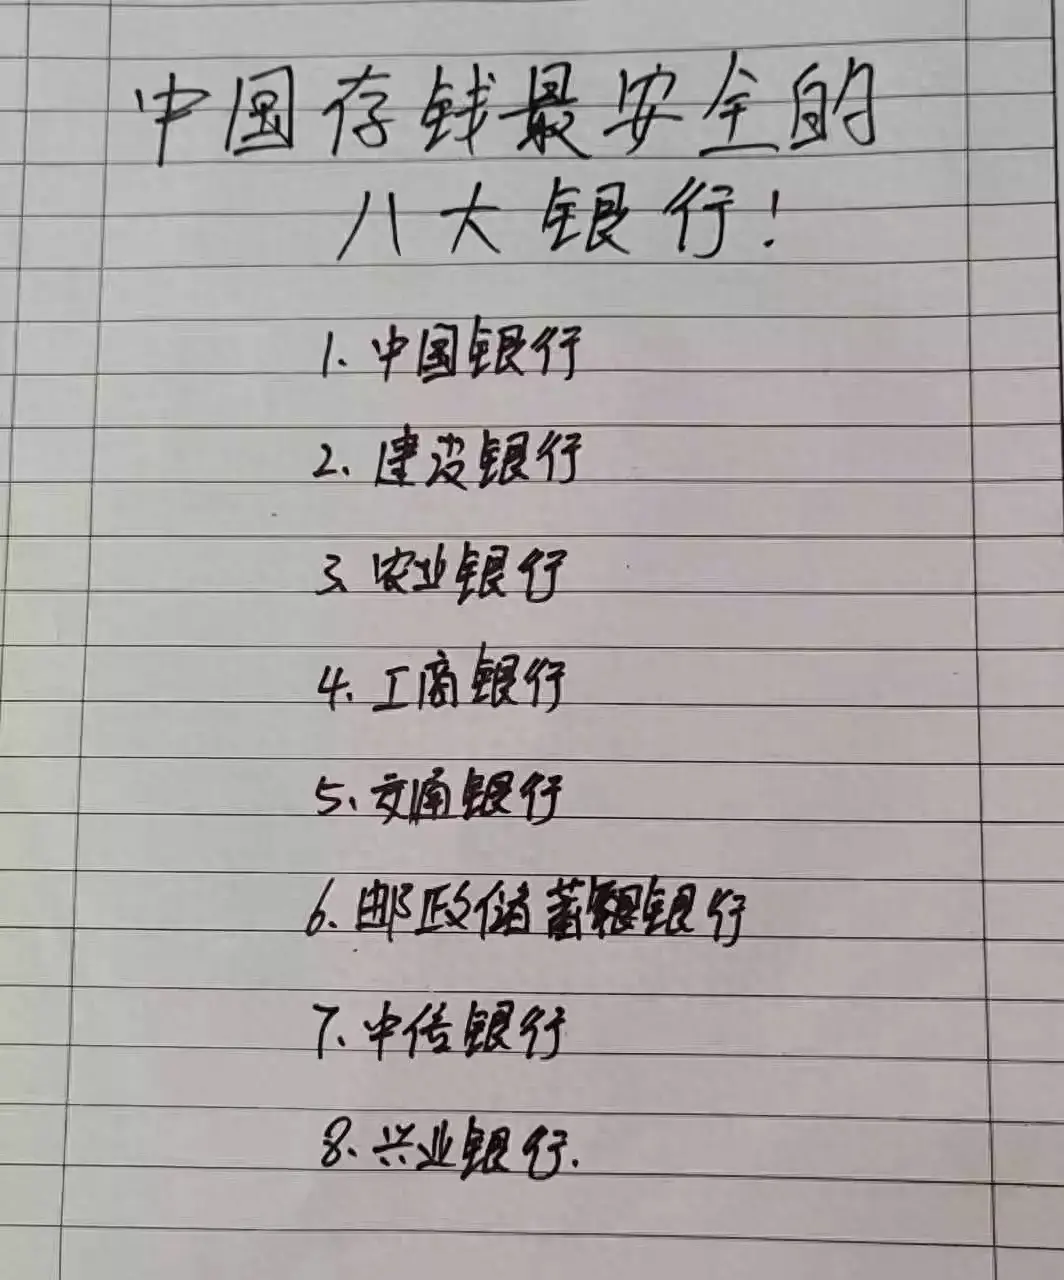 中国存钱最安全的
八大银行!
1. 中国银行
2、建设银行
3、农业银行
4、工商银行
5、交通银行
6、邮政储蓄银行
7、中信银行
8、兴业银行.